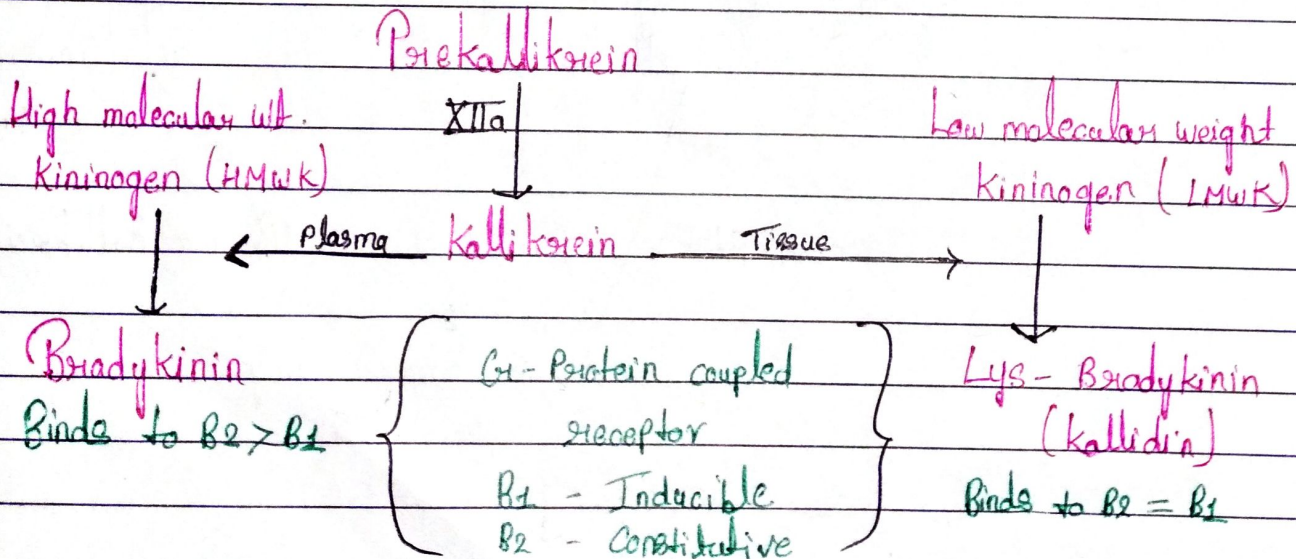 Prekallikrein
High molecular wt.
Kininogen (HMWK)
XIIa
Low molecular weight
Kininogen (LMWK)
Plasma
Kallikrein
Tissue
Bradykinin
Binds to B2 > B1
G-Protein coupled
receptor
B1 - Inducible
B2 - Constitutive
Lys - Bradykinin
(Kallidin)
Binds to B2 = B1